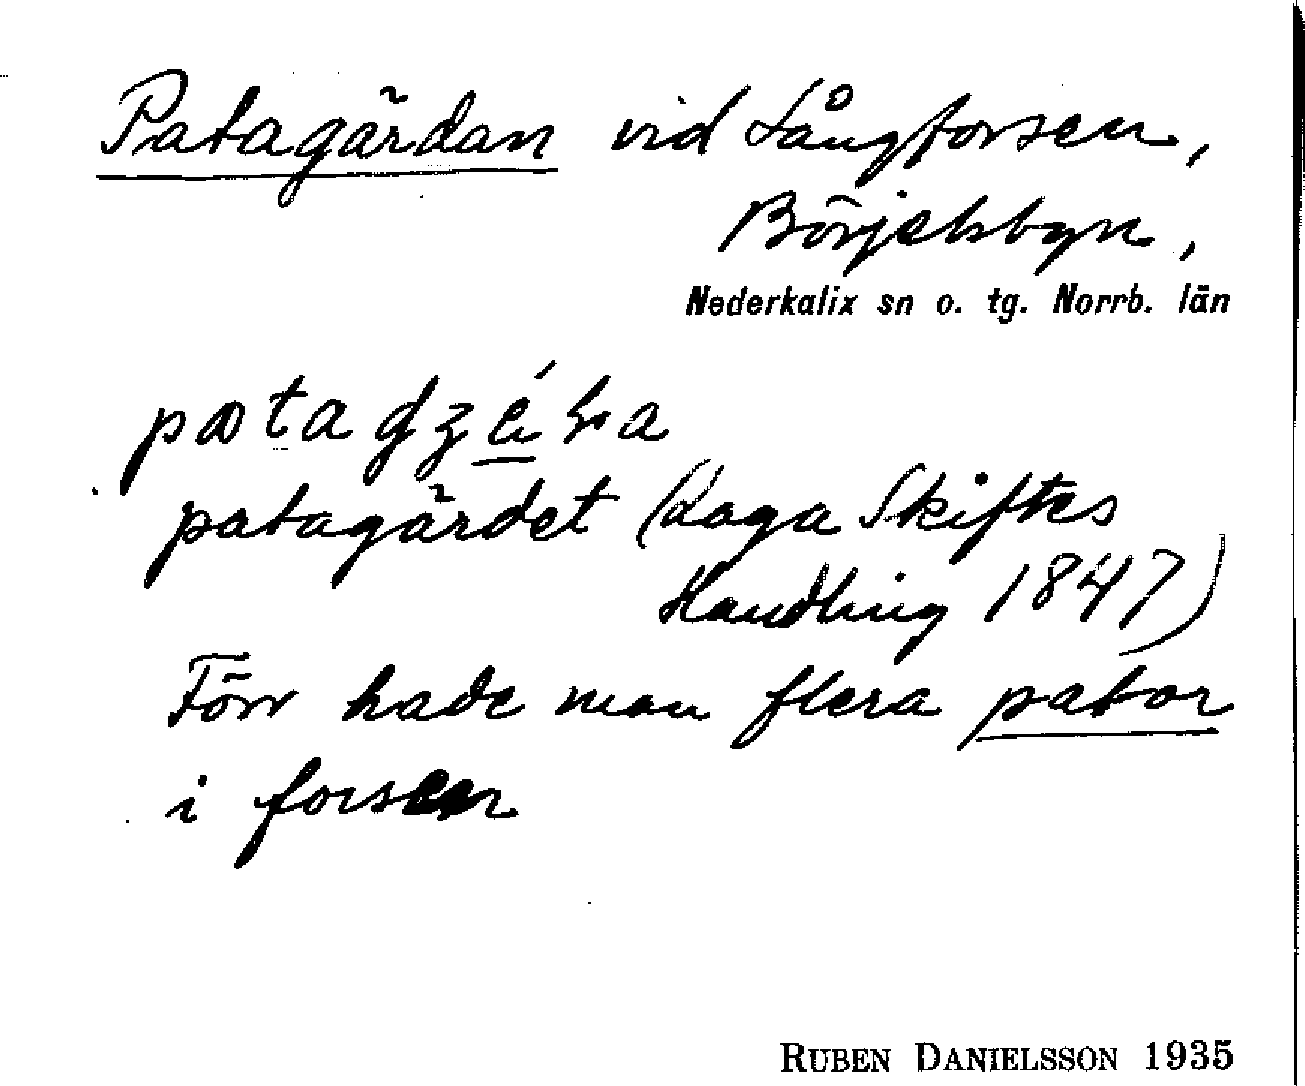 Patagärdan vid Långforsen,
Börjelsbyn,
Nederkalix sn o. tg. Norrb. län
patagärdet (Laga Skiftes
Handling 1847)
Förr hade man flera pator
i forsen
RUBEN DANIELSSON 1935